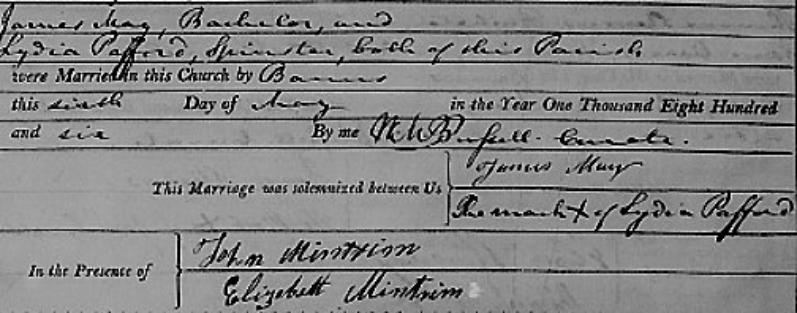 James May, Bachelor, and
Lydia Pafford, Spinster, both of this Parish
were Married in this Church by Banns
this sixth Day of May in the Year One Thousand Eight Hundred
and six By me Curate.
This Marriage was solemnized between Us James May
The mark X of Lydia Pafford
In the Presence of John Mintrim
Elizabeth Mintrim